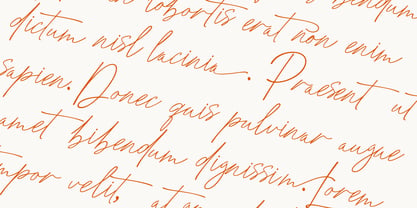 lobortis erat non enim
dictum nisl lacinia. Praesent ut
sapien. Donec quis pulvinar augue
amet bibendum dignissim. Lorem
velit,